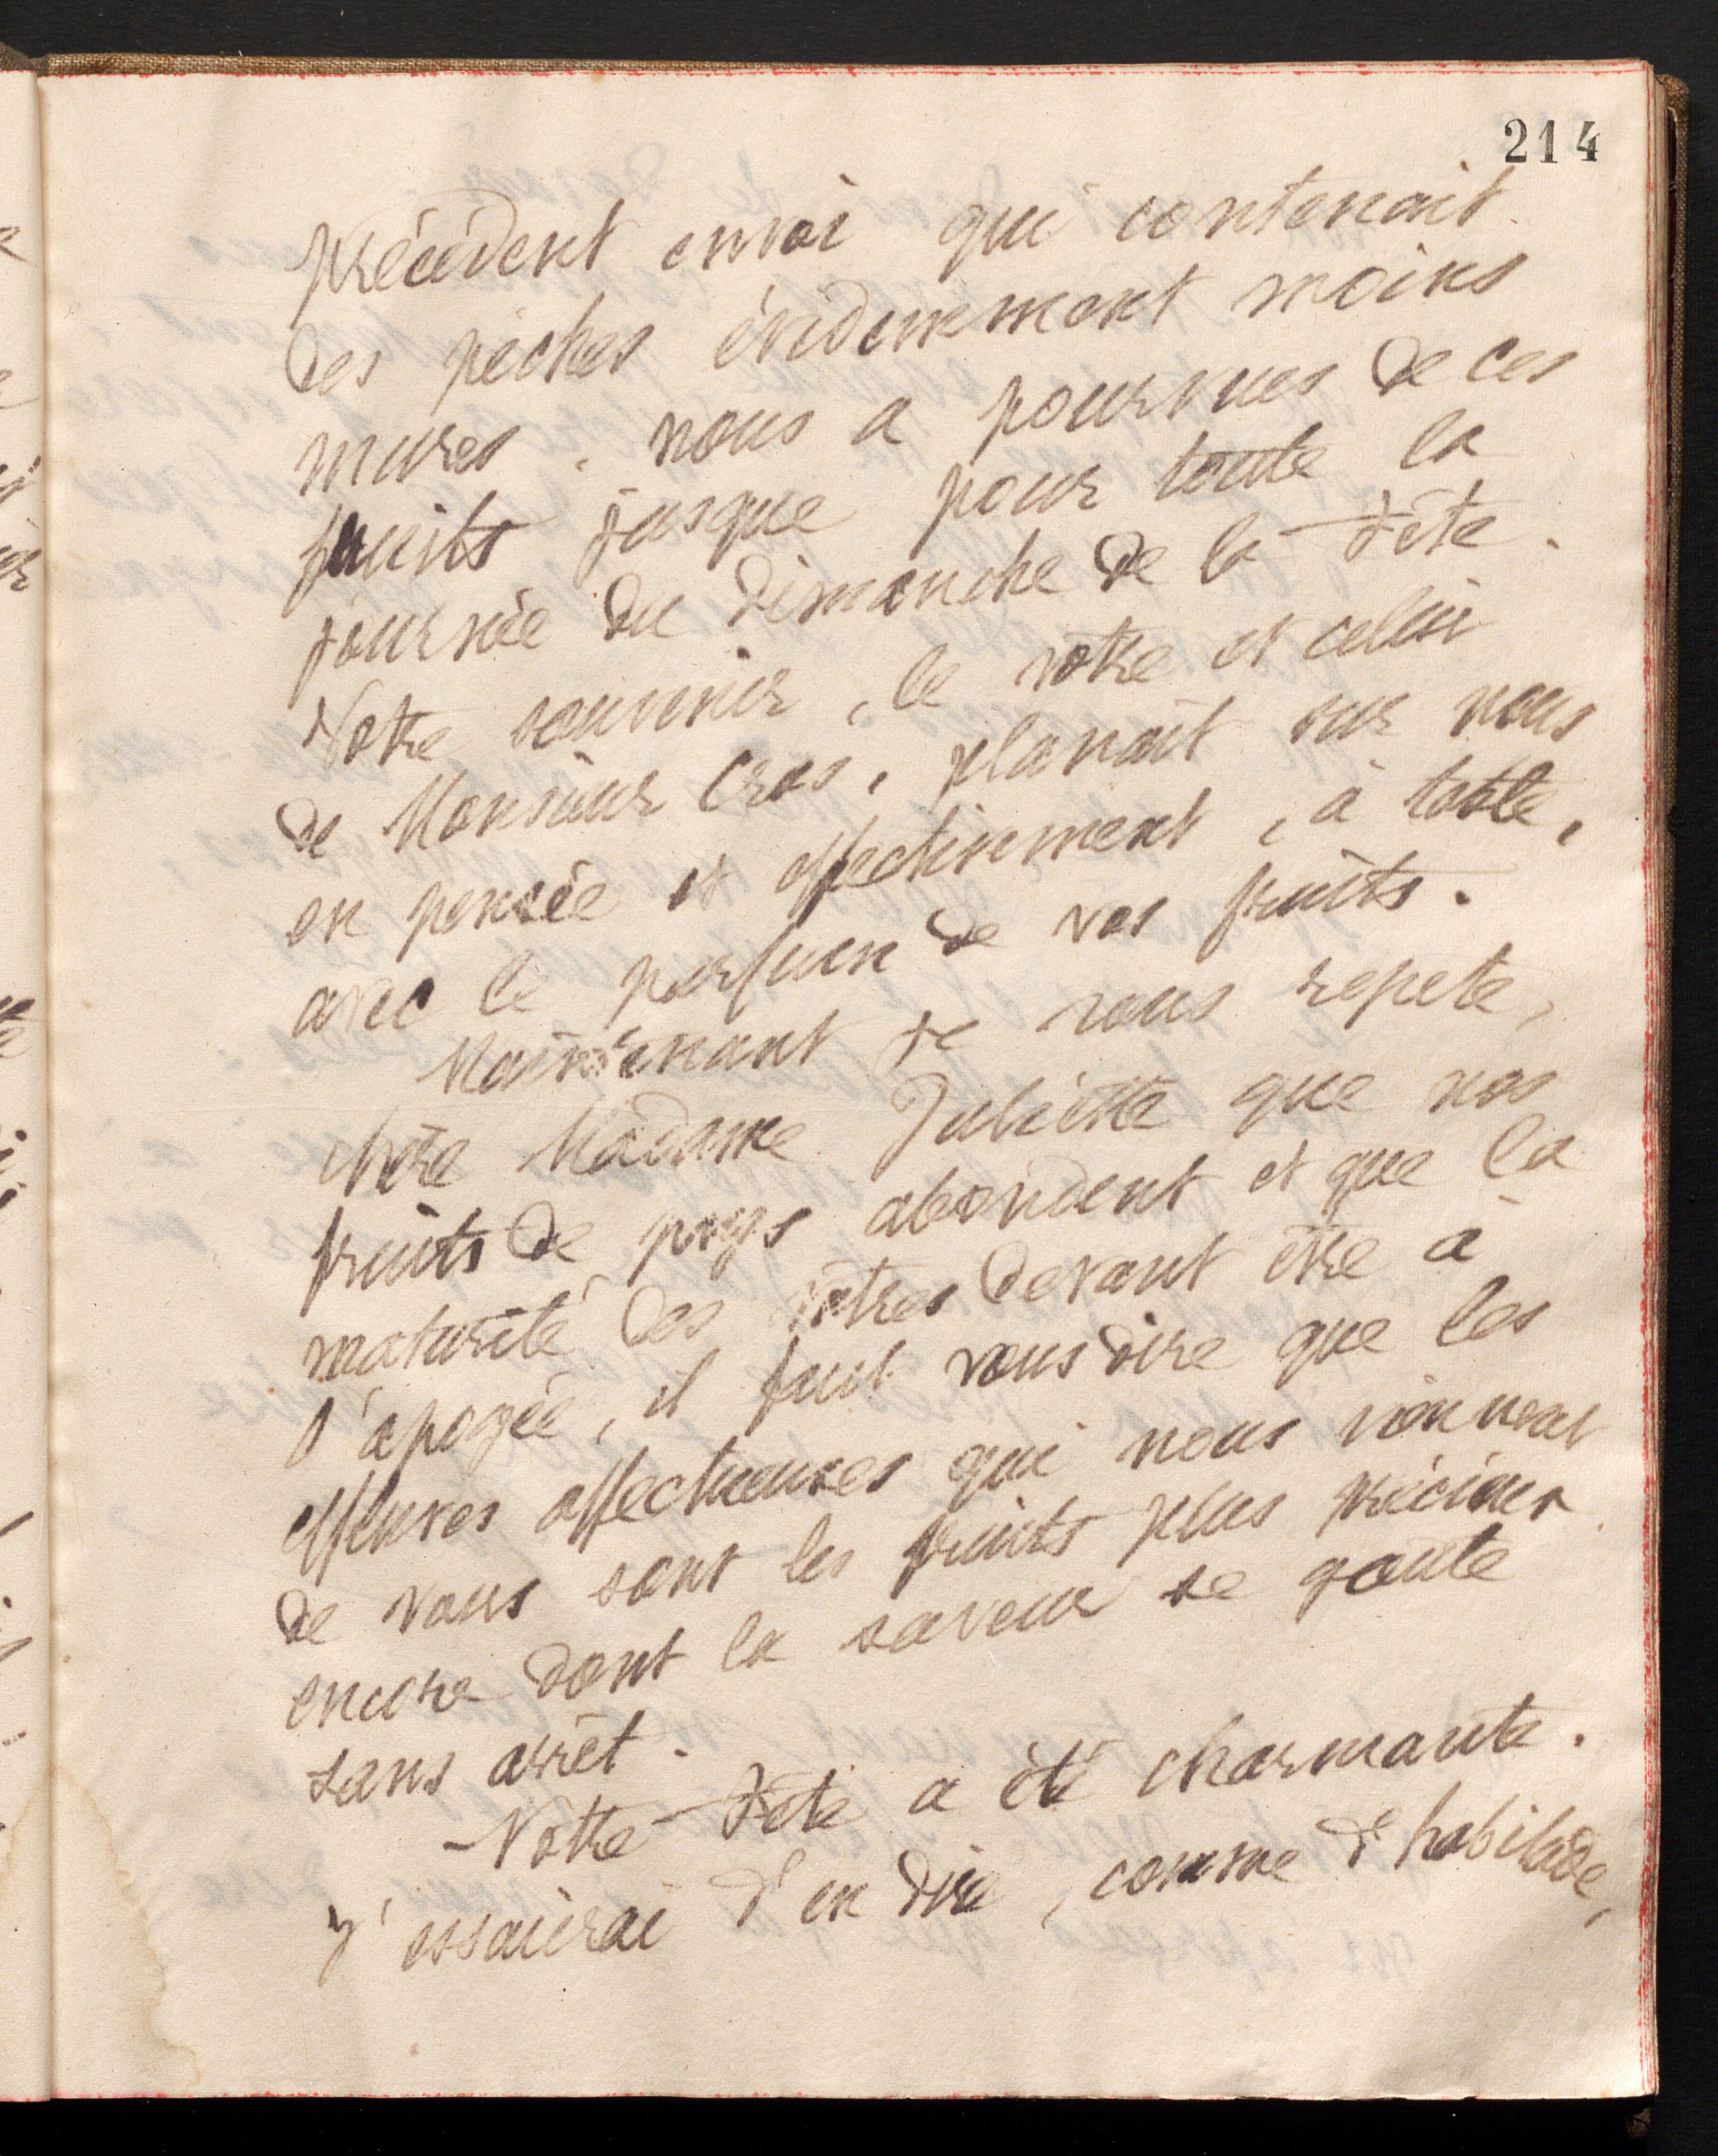 214
précédent envoi qui contenait
des pêches évidemment moins
mures, nous a pourvues de ces
fruits jusque pour toute la
journée du dimanche de la Fête.
Votre souvenir, le vôtre et celui
de Monsieur Cros, planait sur nous
en pensée et effectivement, à table,
avec le parfum de vos fruits.
Maintenant je vous repete,
chère Madame Juliette que nos
fruits de pays abondent et que la
maturité des vôtres devant être à
l'apogée, il faut vous dire que les
effluves affectueuses qui nous viennent
de vous sont les fruits plus précieux
encore dont la saveur se goute
sans arrêt.
Notre Fête a été charmante.
J'essaierai d'en dire, comme d'habitude,